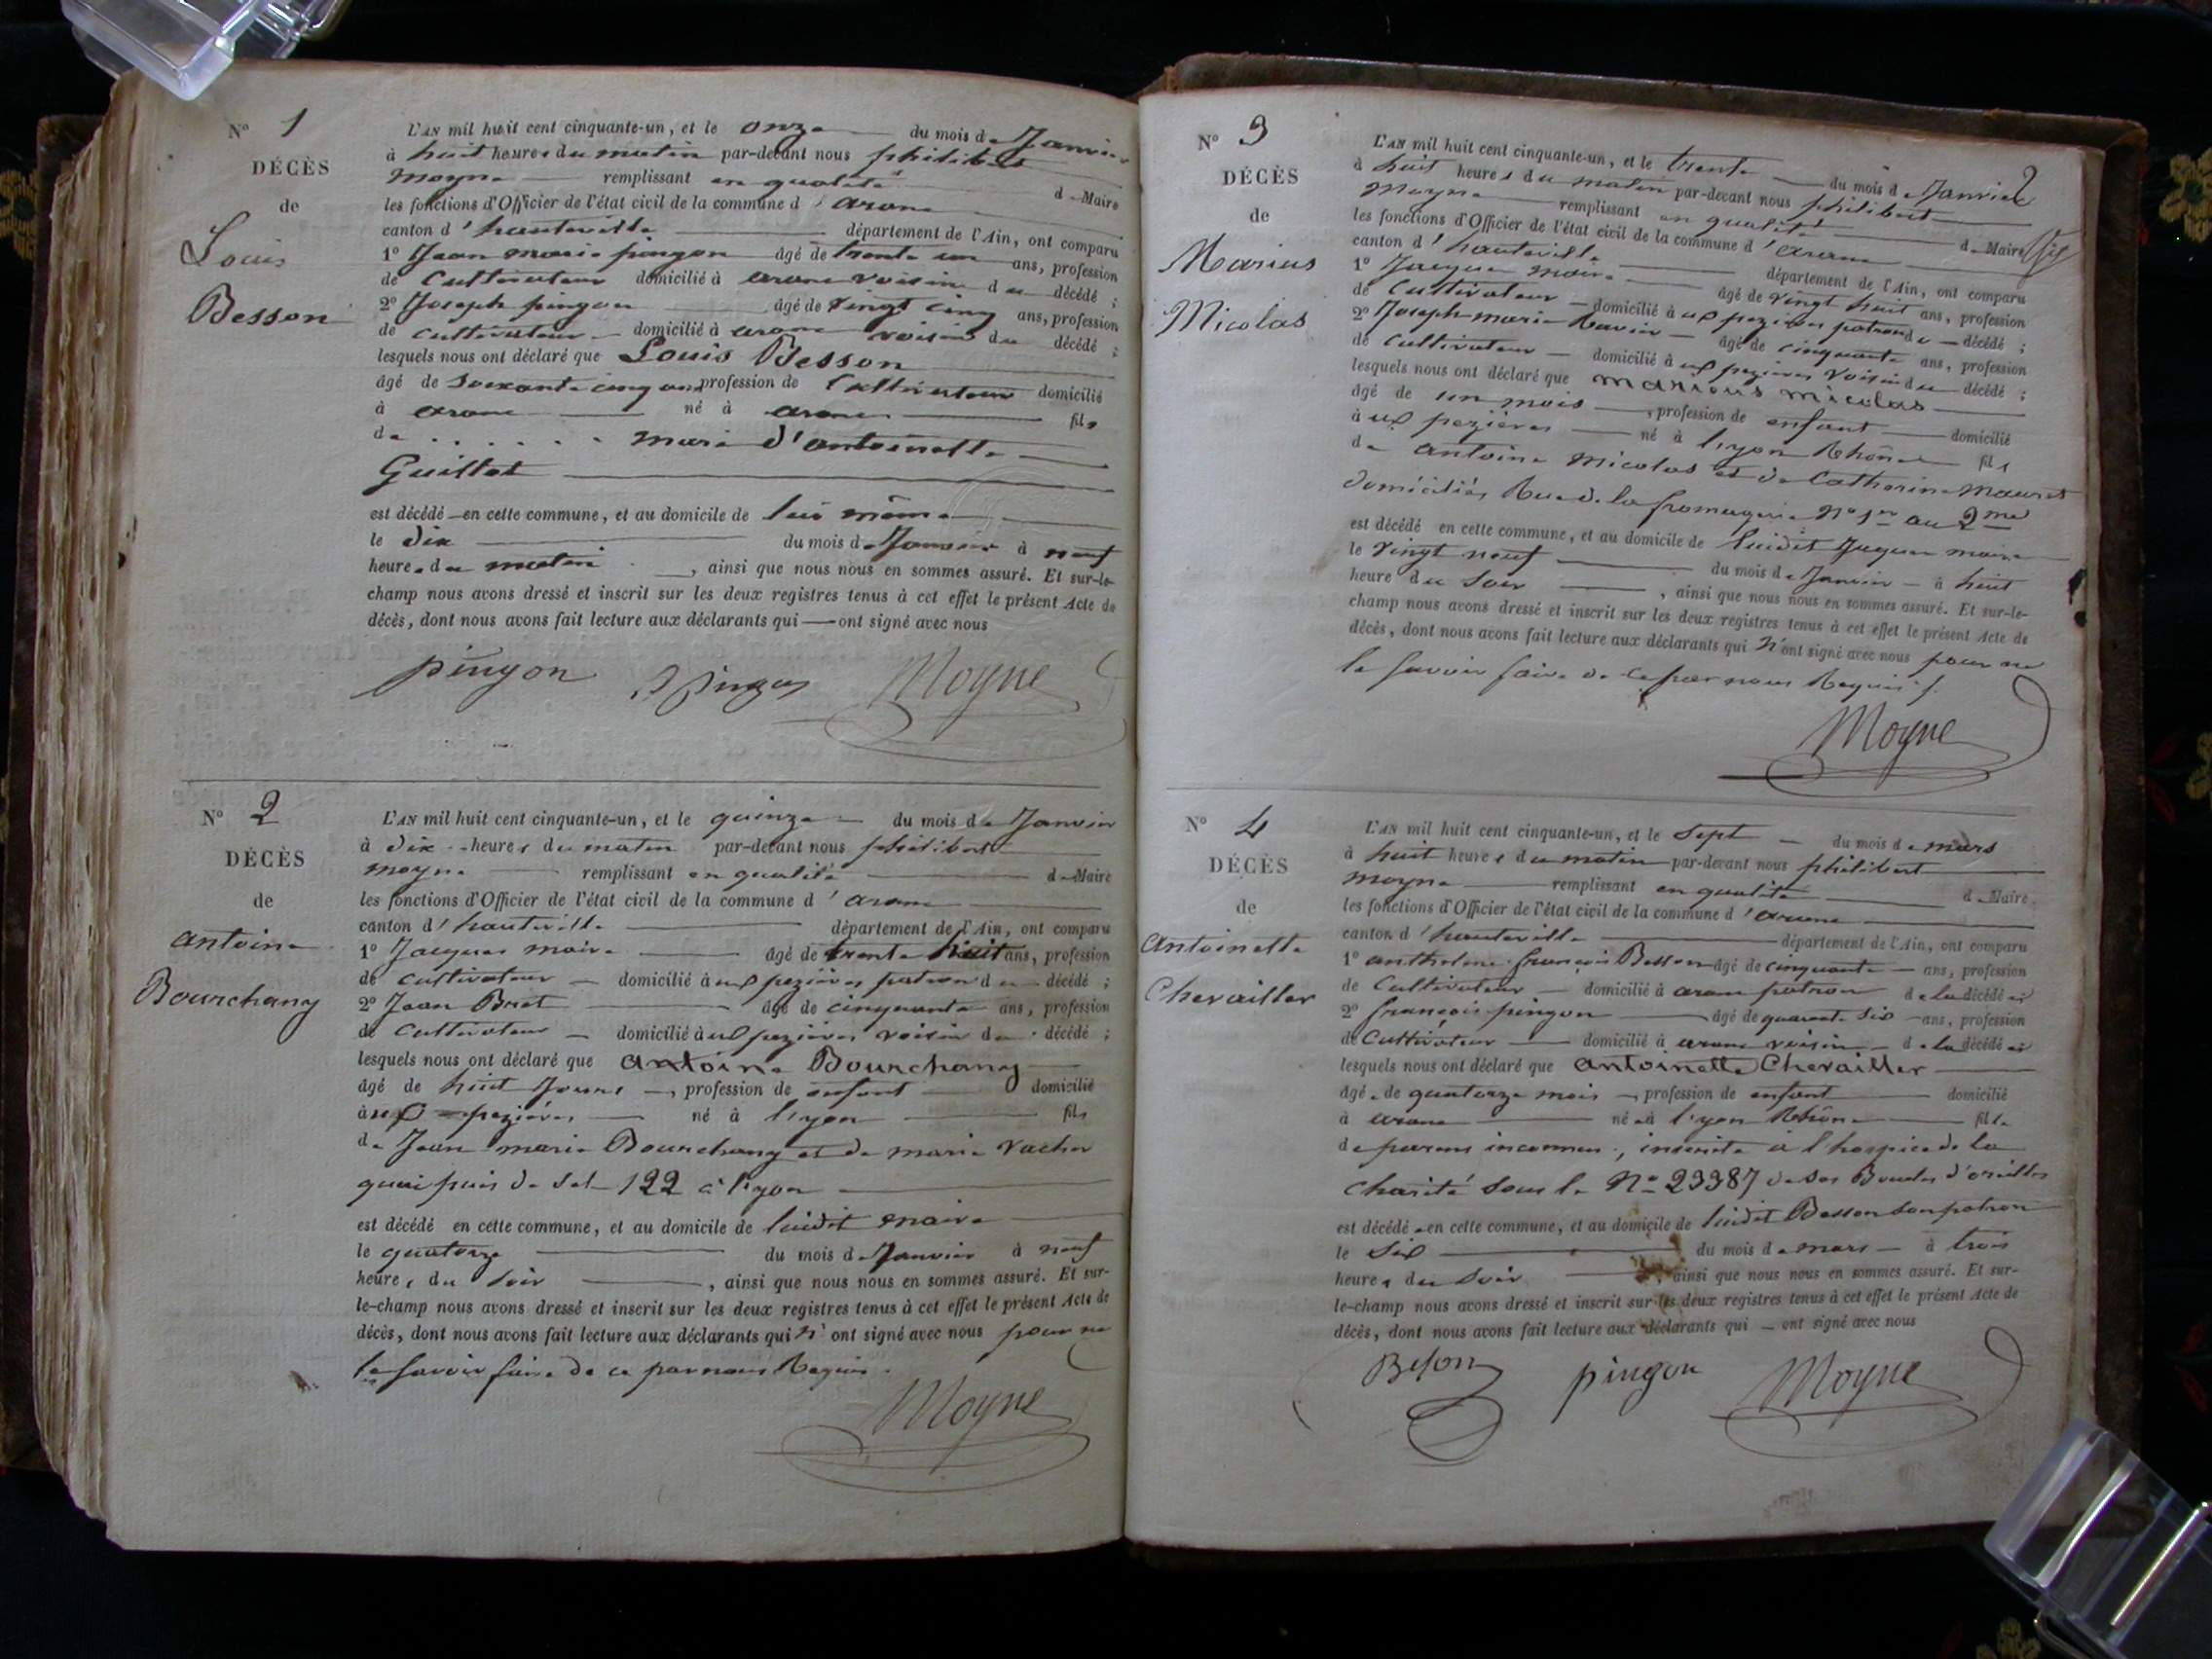 N° 1
DÉCÈS
de
Louis
Besson
L'AN mil huit cent cinquante-un, et le onze du mois de Janvier
à huit heures du matin par-devant nous philibert
moyne remplissant en qualité de Maire
les fonctions d'Officier de l'état civil de la commune d'arane
canton d'hauteville département de l'Ain, ont comparu
1° Jean marie pingon âgé de trente un ans, profession
de Cultivateur domicilié à arane voisin du décédé ;
2° Joseph pingon âgé de vingt cinq ans, profession
de cultivateur domicilié à arane voisin du décédé ;
lesquels nous ont déclaré que Louis Besson
âgé de soixante cinq ans profession de Cultivateur domicilié
à arane né à arane fils
de . . . . . . mari d'antoinette
Guillot
est décédé en cette commune, et au domicile de lui même
le dix du mois de Janvier à neuf
heures du matin, ainsi que nous nous en sommes assuré. Et sur-le-
champ nous avons dressé et inscrit sur les deux registres tenus à cet effet le présent Acte de
décès, dont nous avons fait lecture aux déclarants qui ont signé avec nous
pingon J pingon Moyne
N° 2
DÉCÈS
de
antoine
Bourchany
L'AN mil huit cent cinquante-un, et le quinze du mois de Janvier
à dix heures du matin par-devant nous philibert
moyne remplissant en qualité de Maire
les fonctions d'Officier de l'état civil de la commune d'arane
canton d'hauteville département de l'Ain, ont comparu
1° Jacques maire âgé de trente huit ans, profession
de cultivateur domicilié à ux pezières patron du décédé ;
2° Jean Buet âgé de cinquante ans, profession
de Cultivateur domicilié à ux pezières voisin du décédé ;
lesquels nous ont déclaré que antoine Bourchany
âgé de huit Jours, profession de enfant domicilié
à ux pezières né à lyon fils
de Jean marie Bourchany et de marie vacher
quai puis de sel 122 à lyon
est décédé en cette commune, et au domicile de luidit maire
le quatorze du mois de Janvier à neuf
heures du soir, ainsi que nous nous en sommes assuré. Et sur-
le-champ nous avons dressé et inscrit sur les deux registres tenus à cet effet le présent Acte de
décès, dont nous avons fait lecture aux déclarants qui n'ont signé avec nous pour ne
le savoir faire de ce par nous Requis.
Moyne
N° 3
DÉCÈS
de
Marius
Micolas
L'AN mil huit cent cinquante-un, et le trente du mois de Janvier
à huit heures du matin par-devant nous philibert
Moyne remplissant en qualité de Maire
les fonctions d'Officier de l'état civil de la commune d'arane
canton d'hauteville département de l'Ain, ont comparu
1° Jacques maire âgé de vingt huit ans, profession
de Cultivateur domicilié à ux pezières patron du décédé ;
2° Joseph marie Ravier âgé de cinquante ans, profession
de cultivateur domicilié à ux pezières voisin du décédé ;
lesquels nous ont déclaré que marious micolas
âgé de un mois, profession de enfant domicilié
à ux pezières né à lyon Rhône fils
de antoine micolas et de Catherine
domiciliés Rue de la fromagerie N° 1er au 2me
est décédé en cette commune, et au domicile de luidit Jacques maire
le vingt neuf du mois de Janvier à huit
heure du Soir, ainsi que nous nous en sommes assuré. Et sur-le-
champ nous avons dressé et inscrit sur les deux registres tenus à cet effet le présent Acte de
décès, dont nous avons fait lecture aux déclarants qui n'ont signé avec nous pour ne
le savoir faire de ce par nous Requis
Moyne
N° 4
DÉCÈS
de
antoinette
Chevailler
L'AN mil huit cent cinquante-un, et le sept du mois de mars
à huit heures du matin par-devant nous philibert
moyne remplissant en qualité de Maire
les fonctions d'Officier de l'état civil de la commune d'arane
canton d'hauteville département de l'Ain, ont comparu
1° anthelme françois Besson âgé de cinquante ans, profession
de Cultivateur domicilié à arane patron de la décédée
2° françois pingon âgé de quarante six ans, profession
de Cultivateur domicilié à arane voisin de la décédée
lesquels nous ont déclaré que antoinette Chevailler
âgée de quatorze mois profession de enfant domicilié
à arane née à lyon Rhône fille
de parens inconnus, inscrite à l'hospice de la
Charité sous le N° 23387 de ses Boucles d'oreilles
est décédée en cette commune, et au domicile de luidit Besson son patron
le six du mois de mars à trois
heures du soir, ainsi que nous nous en sommes assuré. Et sur-
le-champ nous avons dressé et inscrit sur les deux registres tenus à cet effet le présent Acte de
décès, dont nous avons fait lecture aux déclarants qui ont signé avec nous
Beson pingon Moyne